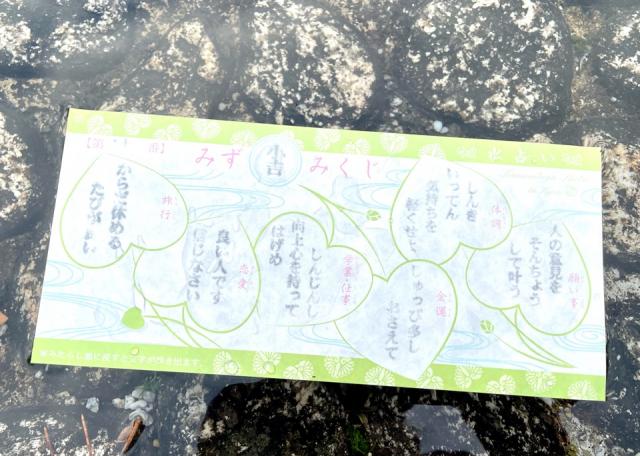 水占い
みずみくじ
小吉
【第
番】
願い事
人の意見を
そんちょう
して叶う
体調
しんを
いってん
気持ちを
軽くせよ
金運
しゅっぴ多し
おさえて
学業・仕事
しんじんし
向上心を持って
はげめ
恋愛
良い人です
信じなさい
旅行
からだ休める
たび